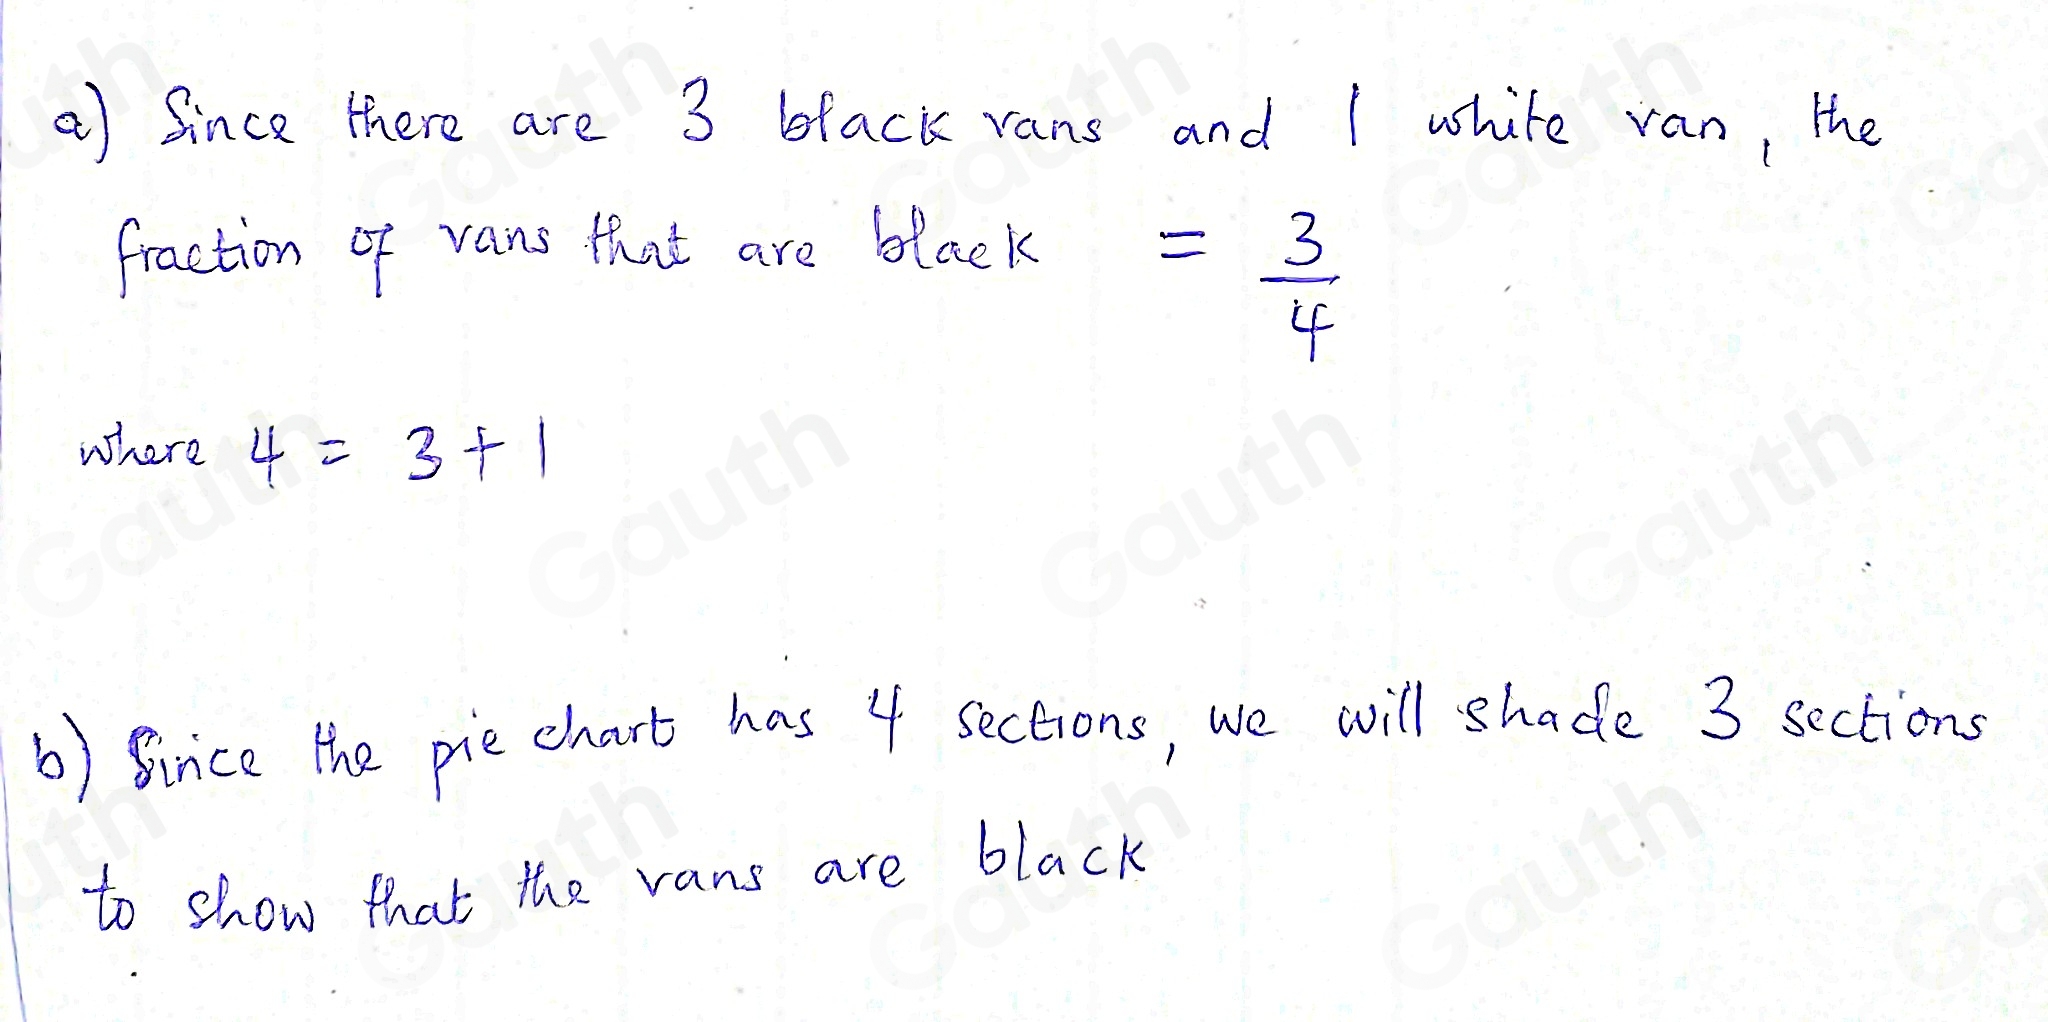 a) Since there are 3 black vans and 1 white van, the
fraction of vans that are black = 3/4
where 4 = 3 + 1
b) Since the pie chart has 4 sections, we will shade 3 sections
to show that the vans are black
Gauth